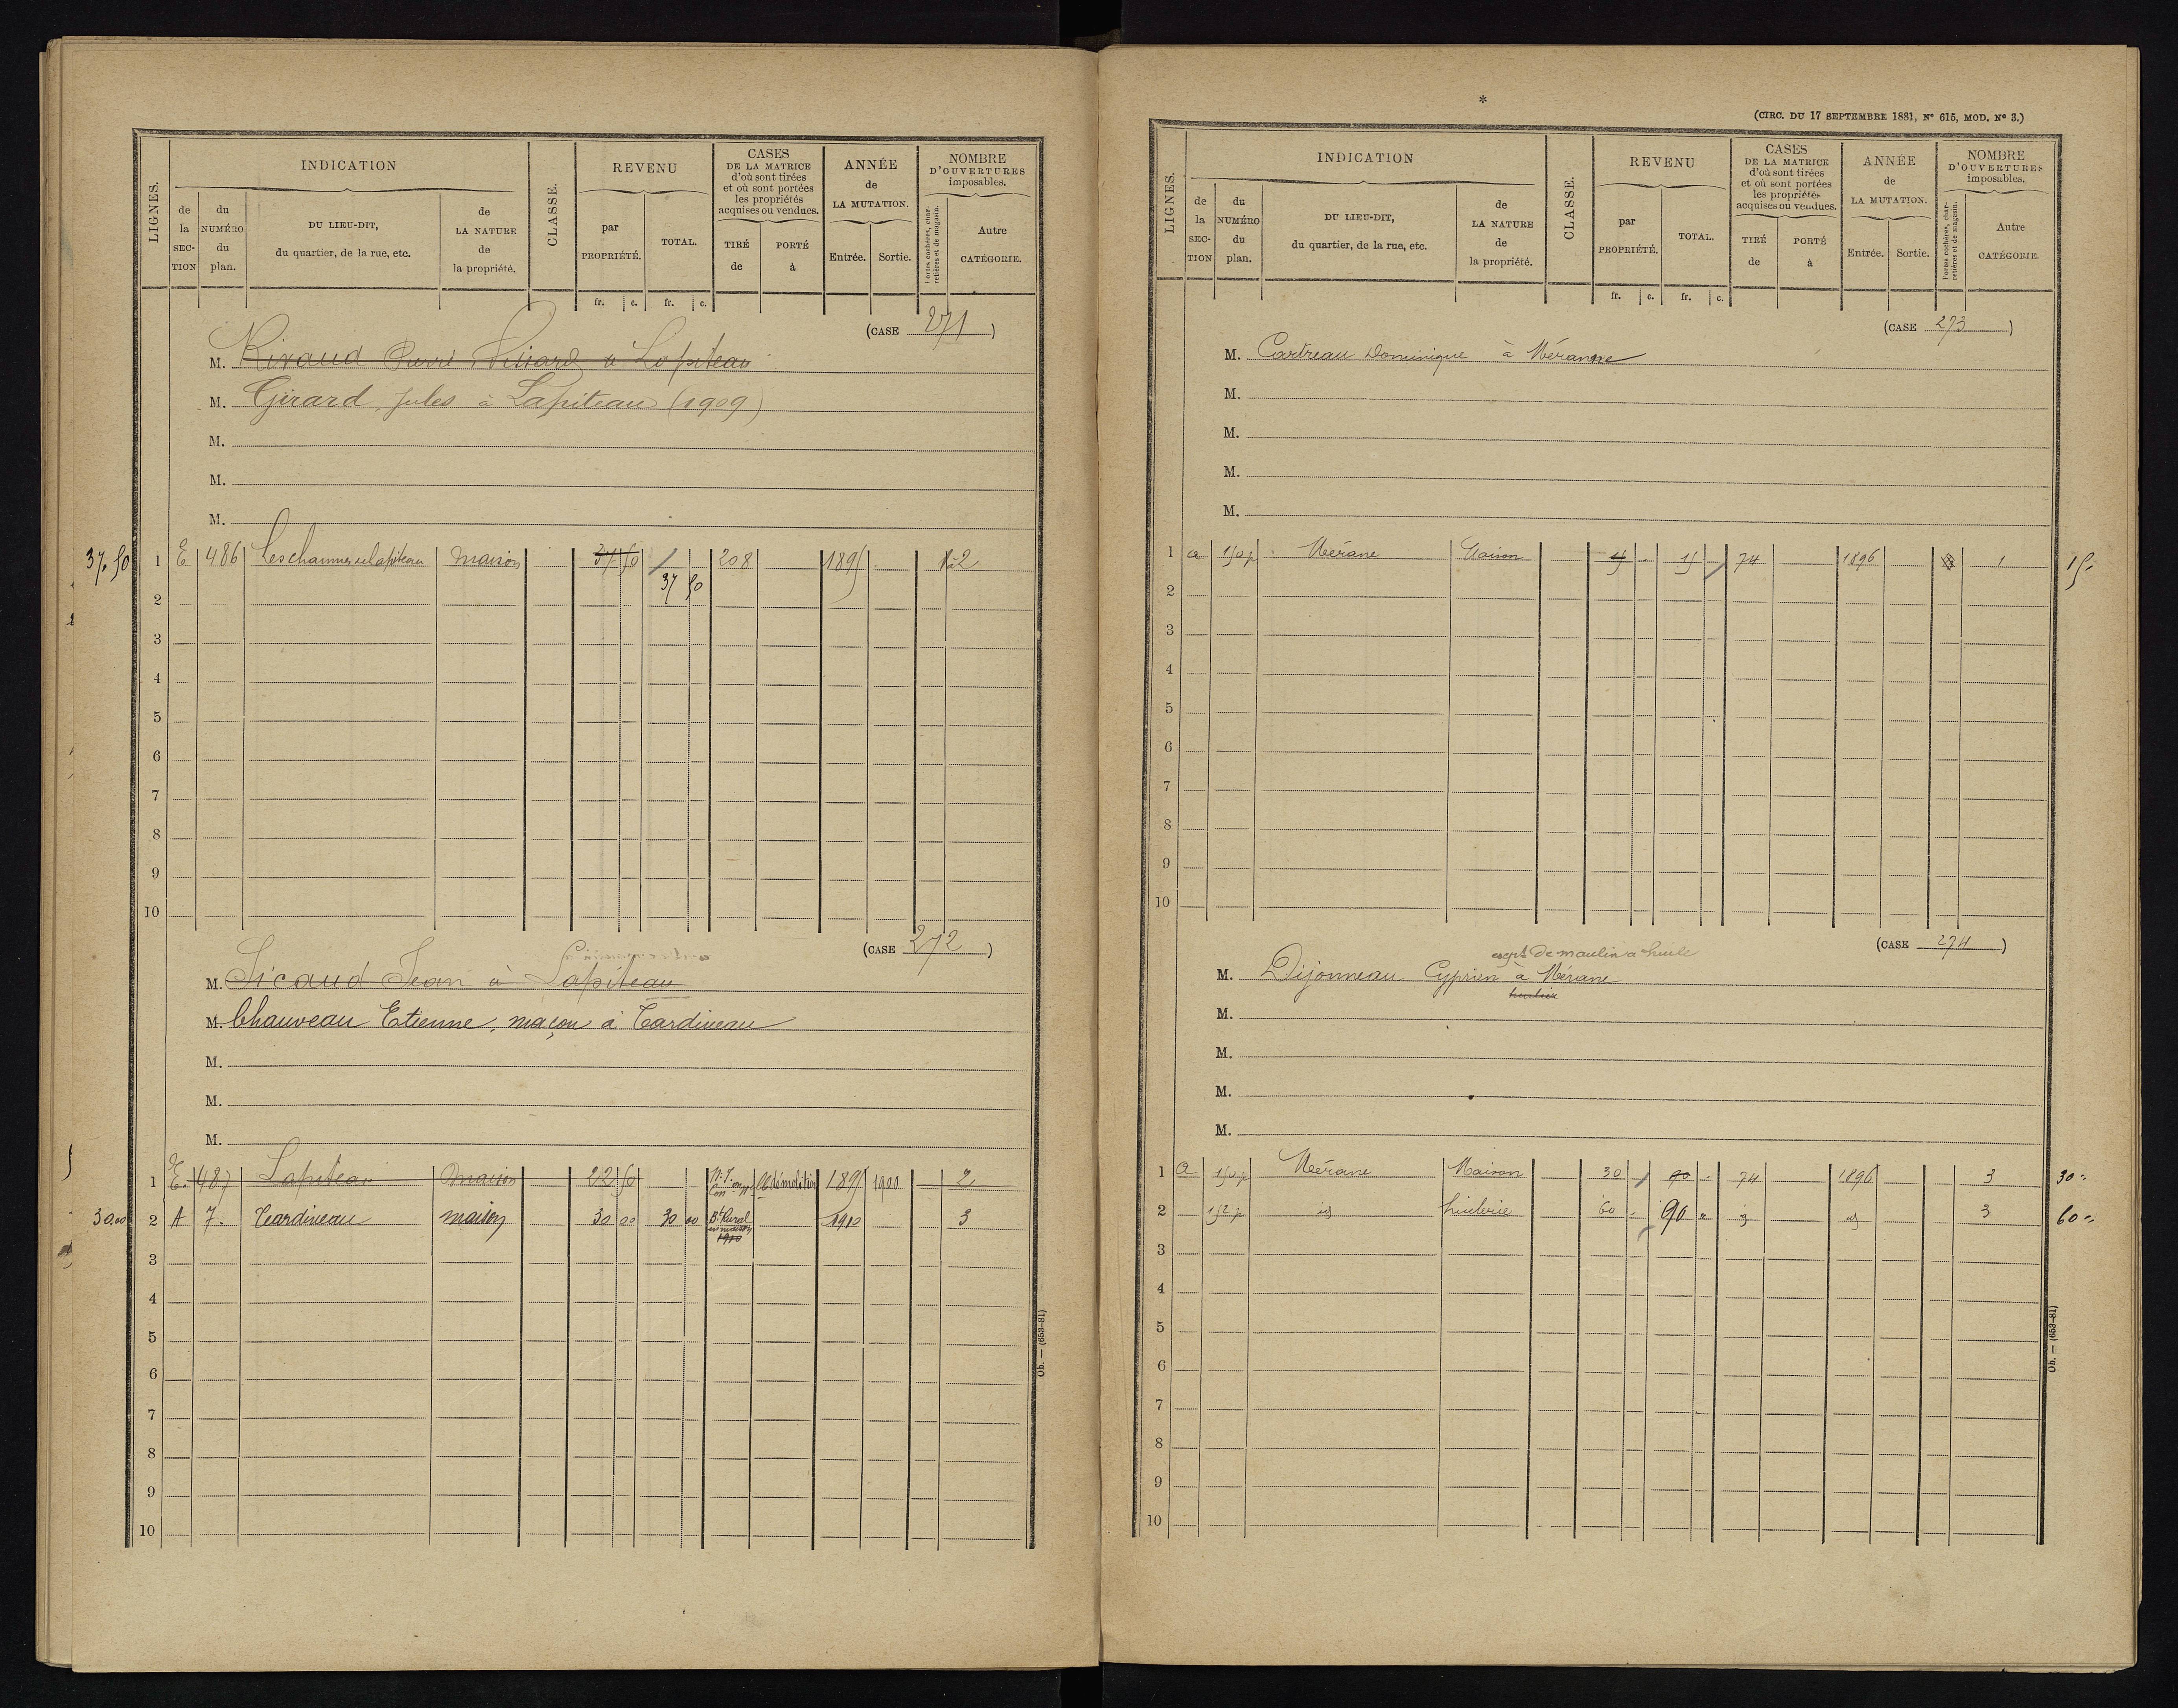 LIGNES.
INDICATION
de la SECTION
du NUMÉRO du plan.
DU LIEU-DIT, du quartier, de la rue, etc.
de LA NATURE de la propriété.
CLASSE.
REVENU
par PROPRIÉTÉ.
TOTAL.
CASES DE LA MATRICE d'où sont tirées et où sont portées les propriétés acquises ou vendues.
TIRÉ de
PORTÉ à
ANNÉE de LA MUTATION.
Entrée.
Sortie.
NOMBRE D'OUVERTURES imposables.
Portes cochères, charretières et de magasin.
Autre CATÉGORIE.
fr. c. fr. c.
(CASE 271)
M. Rivaud Pierre à Lapiteau
M. Girard, Jules à Lapiteau (1909)
M.
M.
M.
37.50 1 E 486 Les chaumes de Lapiteau maison 37 50 208 1895 2
37 50
2
3
4
5
6
7
8
9
10
(CASE 272)
M. Sicaud Jean à Lapiteau
M. Chauveau Etienne, maçon à Tardiveau
M.
M.
M.
1 E. 487 Lapiteau maison 22 50 démolition 1895 1900 2
30.00 2 A 7. Tardiveau maison 30 00 30 00 Bt Rural 1910 3
1910
3
4
5
6
7
8
9
10
Ob. — (653-81)
*
(CIRC. DU 17 SEPTEMBRE 1881, N° 615, MOD. N° 3.)
LIGNES.
INDICATION
de la SECTION
du NUMÉRO du plan.
DU LIEU-DIT, du quartier, de la rue, etc.
de LA NATURE de la propriété.
CLASSE.
REVENU
par PROPRIÉTÉ.
TOTAL.
CASES DE LA MATRICE d'où sont tirées et où sont portées les propriétés acquises ou vendues.
TIRÉ de
PORTÉ à
ANNÉE de LA MUTATION.
Entrée.
Sortie.
NOMBRE D'OUVERTURES imposables.
Portes cochères, charretières et de magasin.
Autre CATÉGORIE.
fr. c. fr. c.
(CASE 273)
M. Cartreau Dominique à Mérane
M.
M.
M.
M.
1 a 150p Mérane Maison 15 15 74 1896 1 15
2
3
4
5
6
7
8
9
10
(CASE 274)
expt de moulin a huile
M. Dijonneau Cyprien à Mérane
huilier
M.
M.
M.
M.
1 a 150p Mérane Maison 30 90 74 1896 3 30
2 152p id huilerie 60 90 id id 3 60
3
4
5
6
7
8
9
10
Ob. — (653-81)